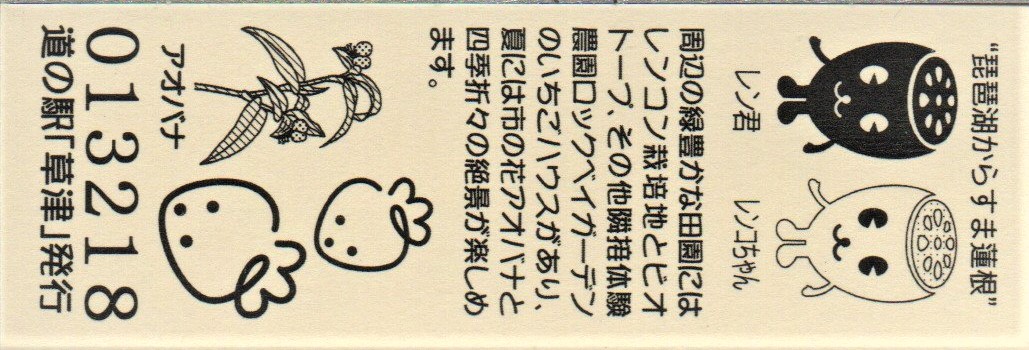 “琵琶湖からすま蓮根”
レン君
レンコちゃん
周辺の緑豊かな田園には
レンコン栽培地とビオ
トープ、その他隣接体験
農園ロックベイガーデン
のいちごハウスがあり、
夏には市の花アオバナと
四季折々の絶景が楽しめ
ます。
アオバナ
013218
道の駅「草津」発行